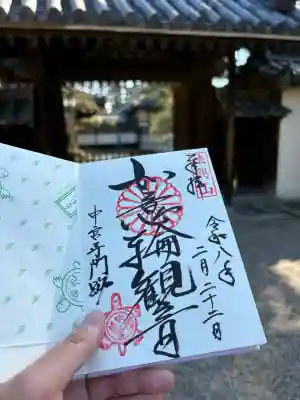 奉拝
令和八年
二月二十二日
如意輪観音
中宮寺門跡